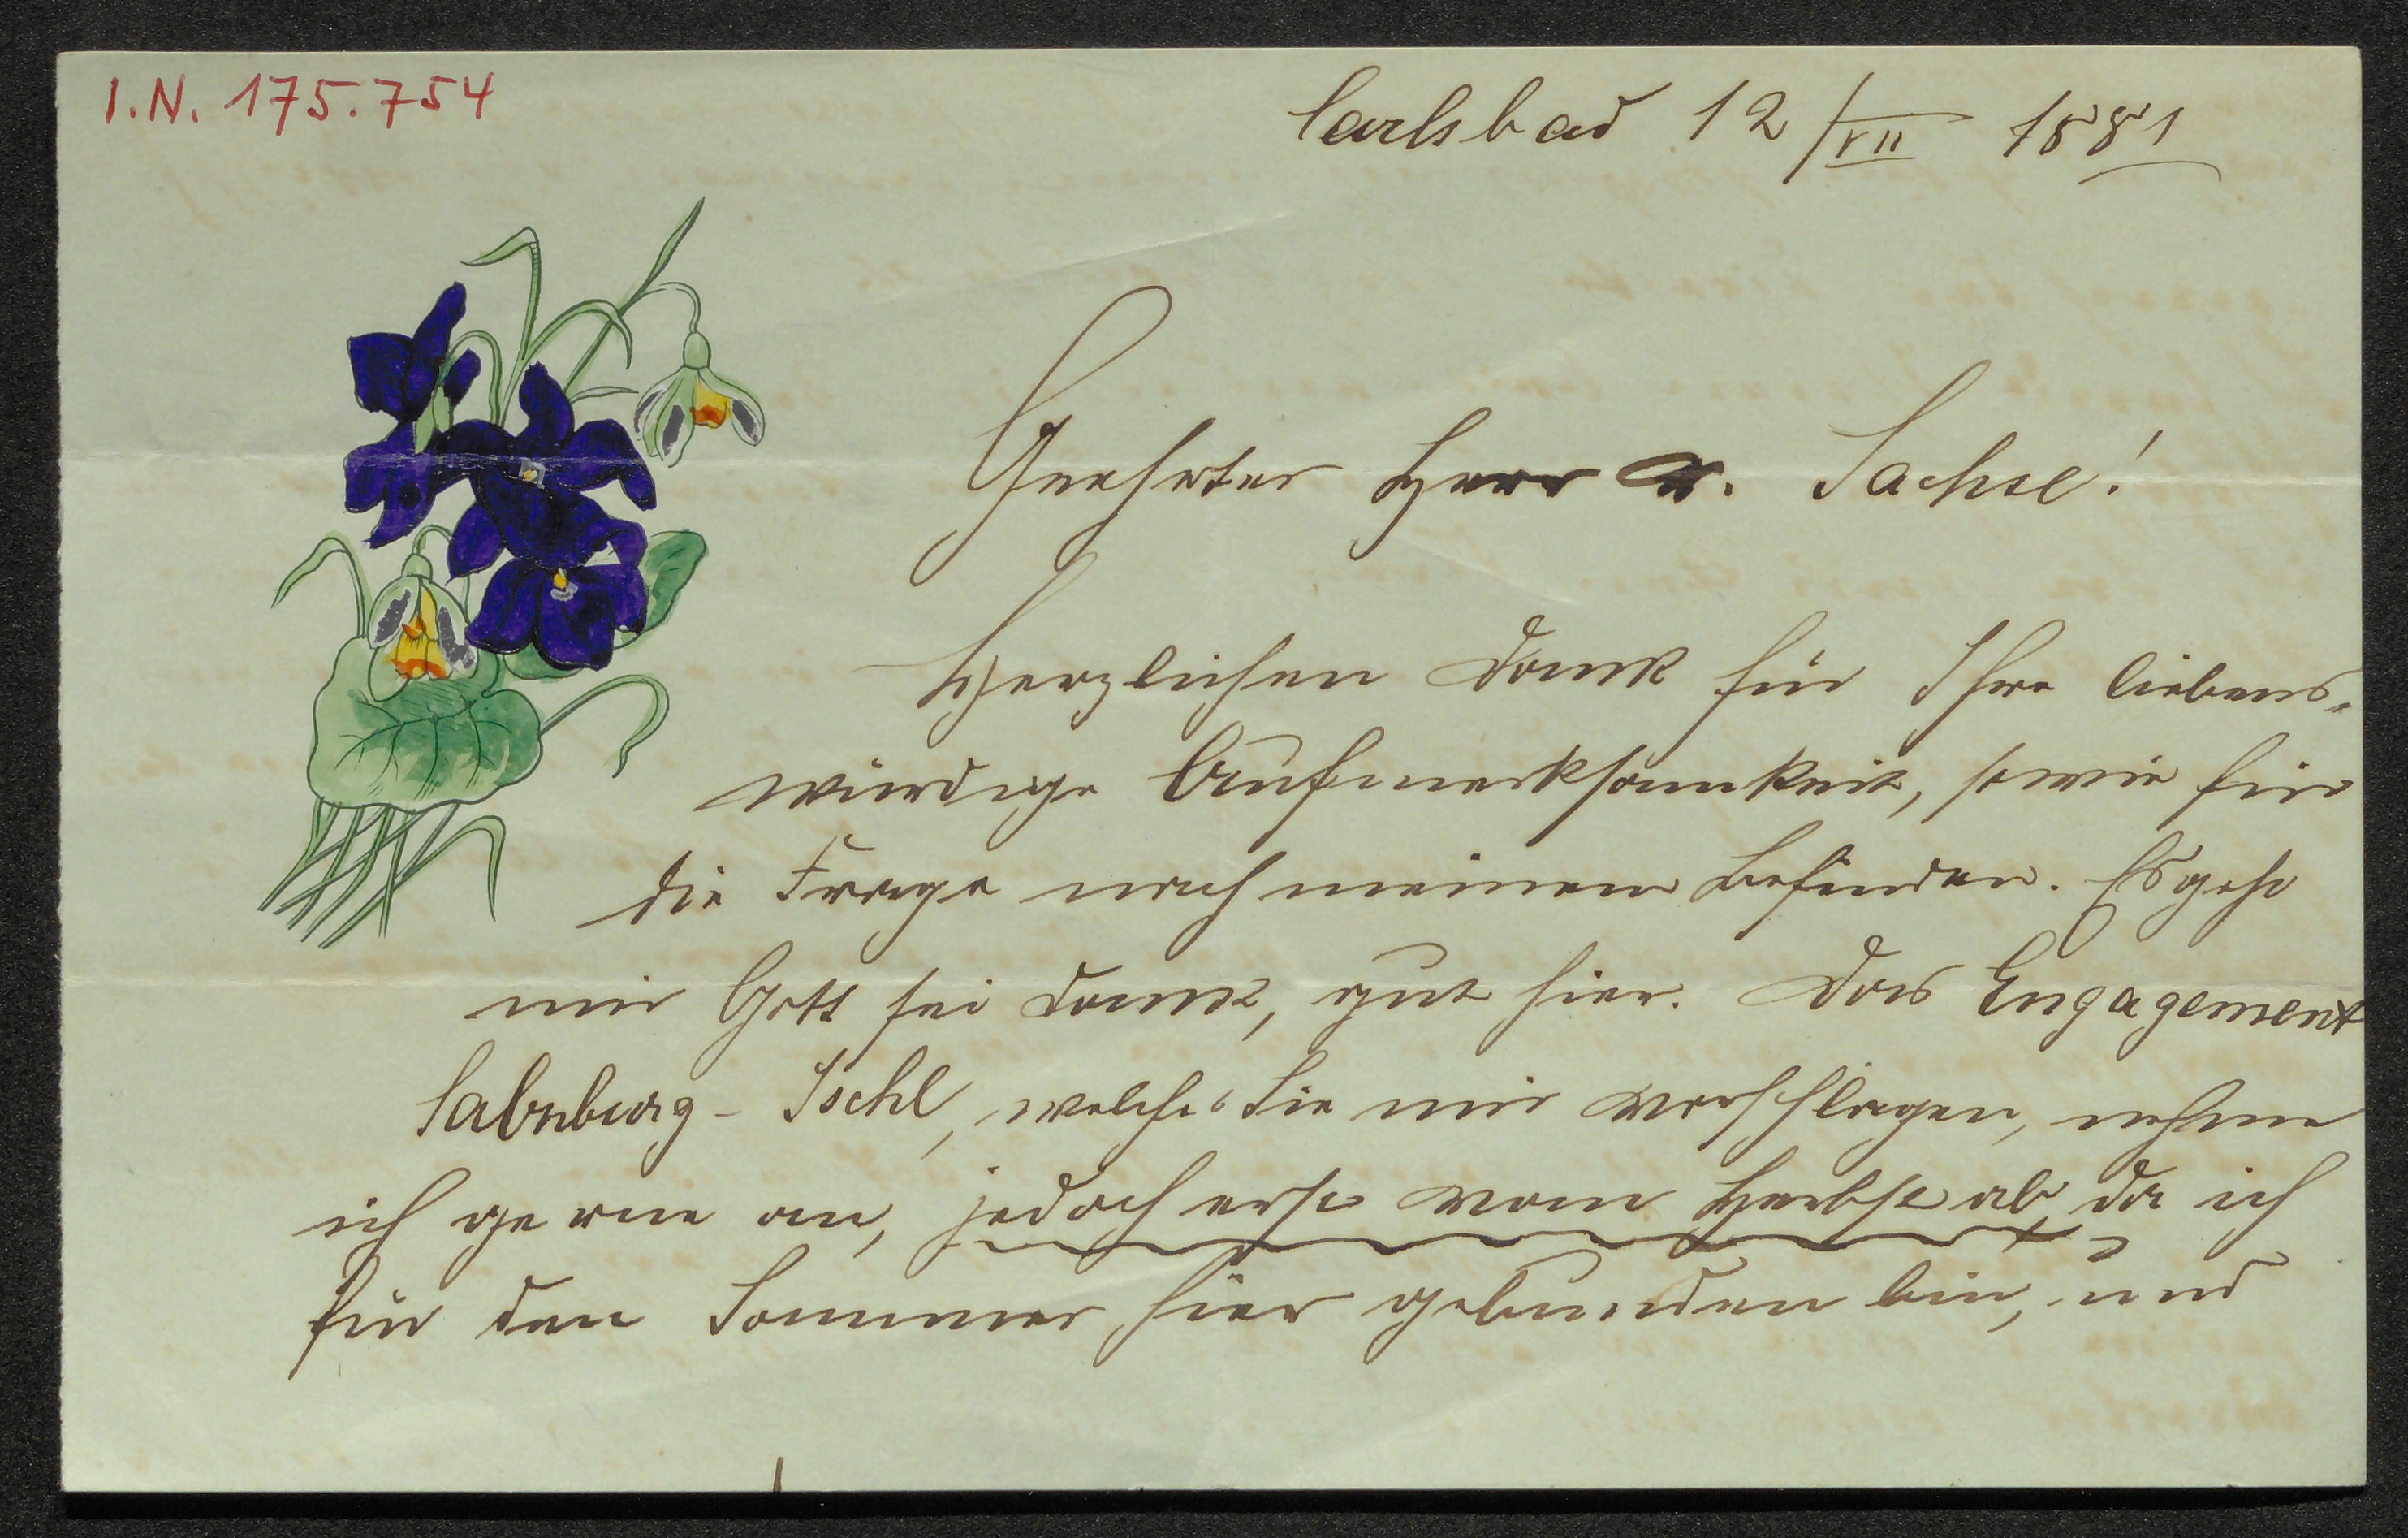 I.N. 175.754
Carlsbad 12/VII 1881
Geehrter Herr v. Sachse!
Herzlichen Dank für Ihre liebens-
würdige Aufmerksamkeit, sowie für
die Frage nach meinem Befinden. Es geht
mir Gott sei Dank, gut hier. Das Engagement
Salzburg - Ischl, welches Sie mir vorschlagen, nehme
ich gerne an, jedoch erst vom Herbst ab, da ich
für den Sommer hier gebunden bin, und